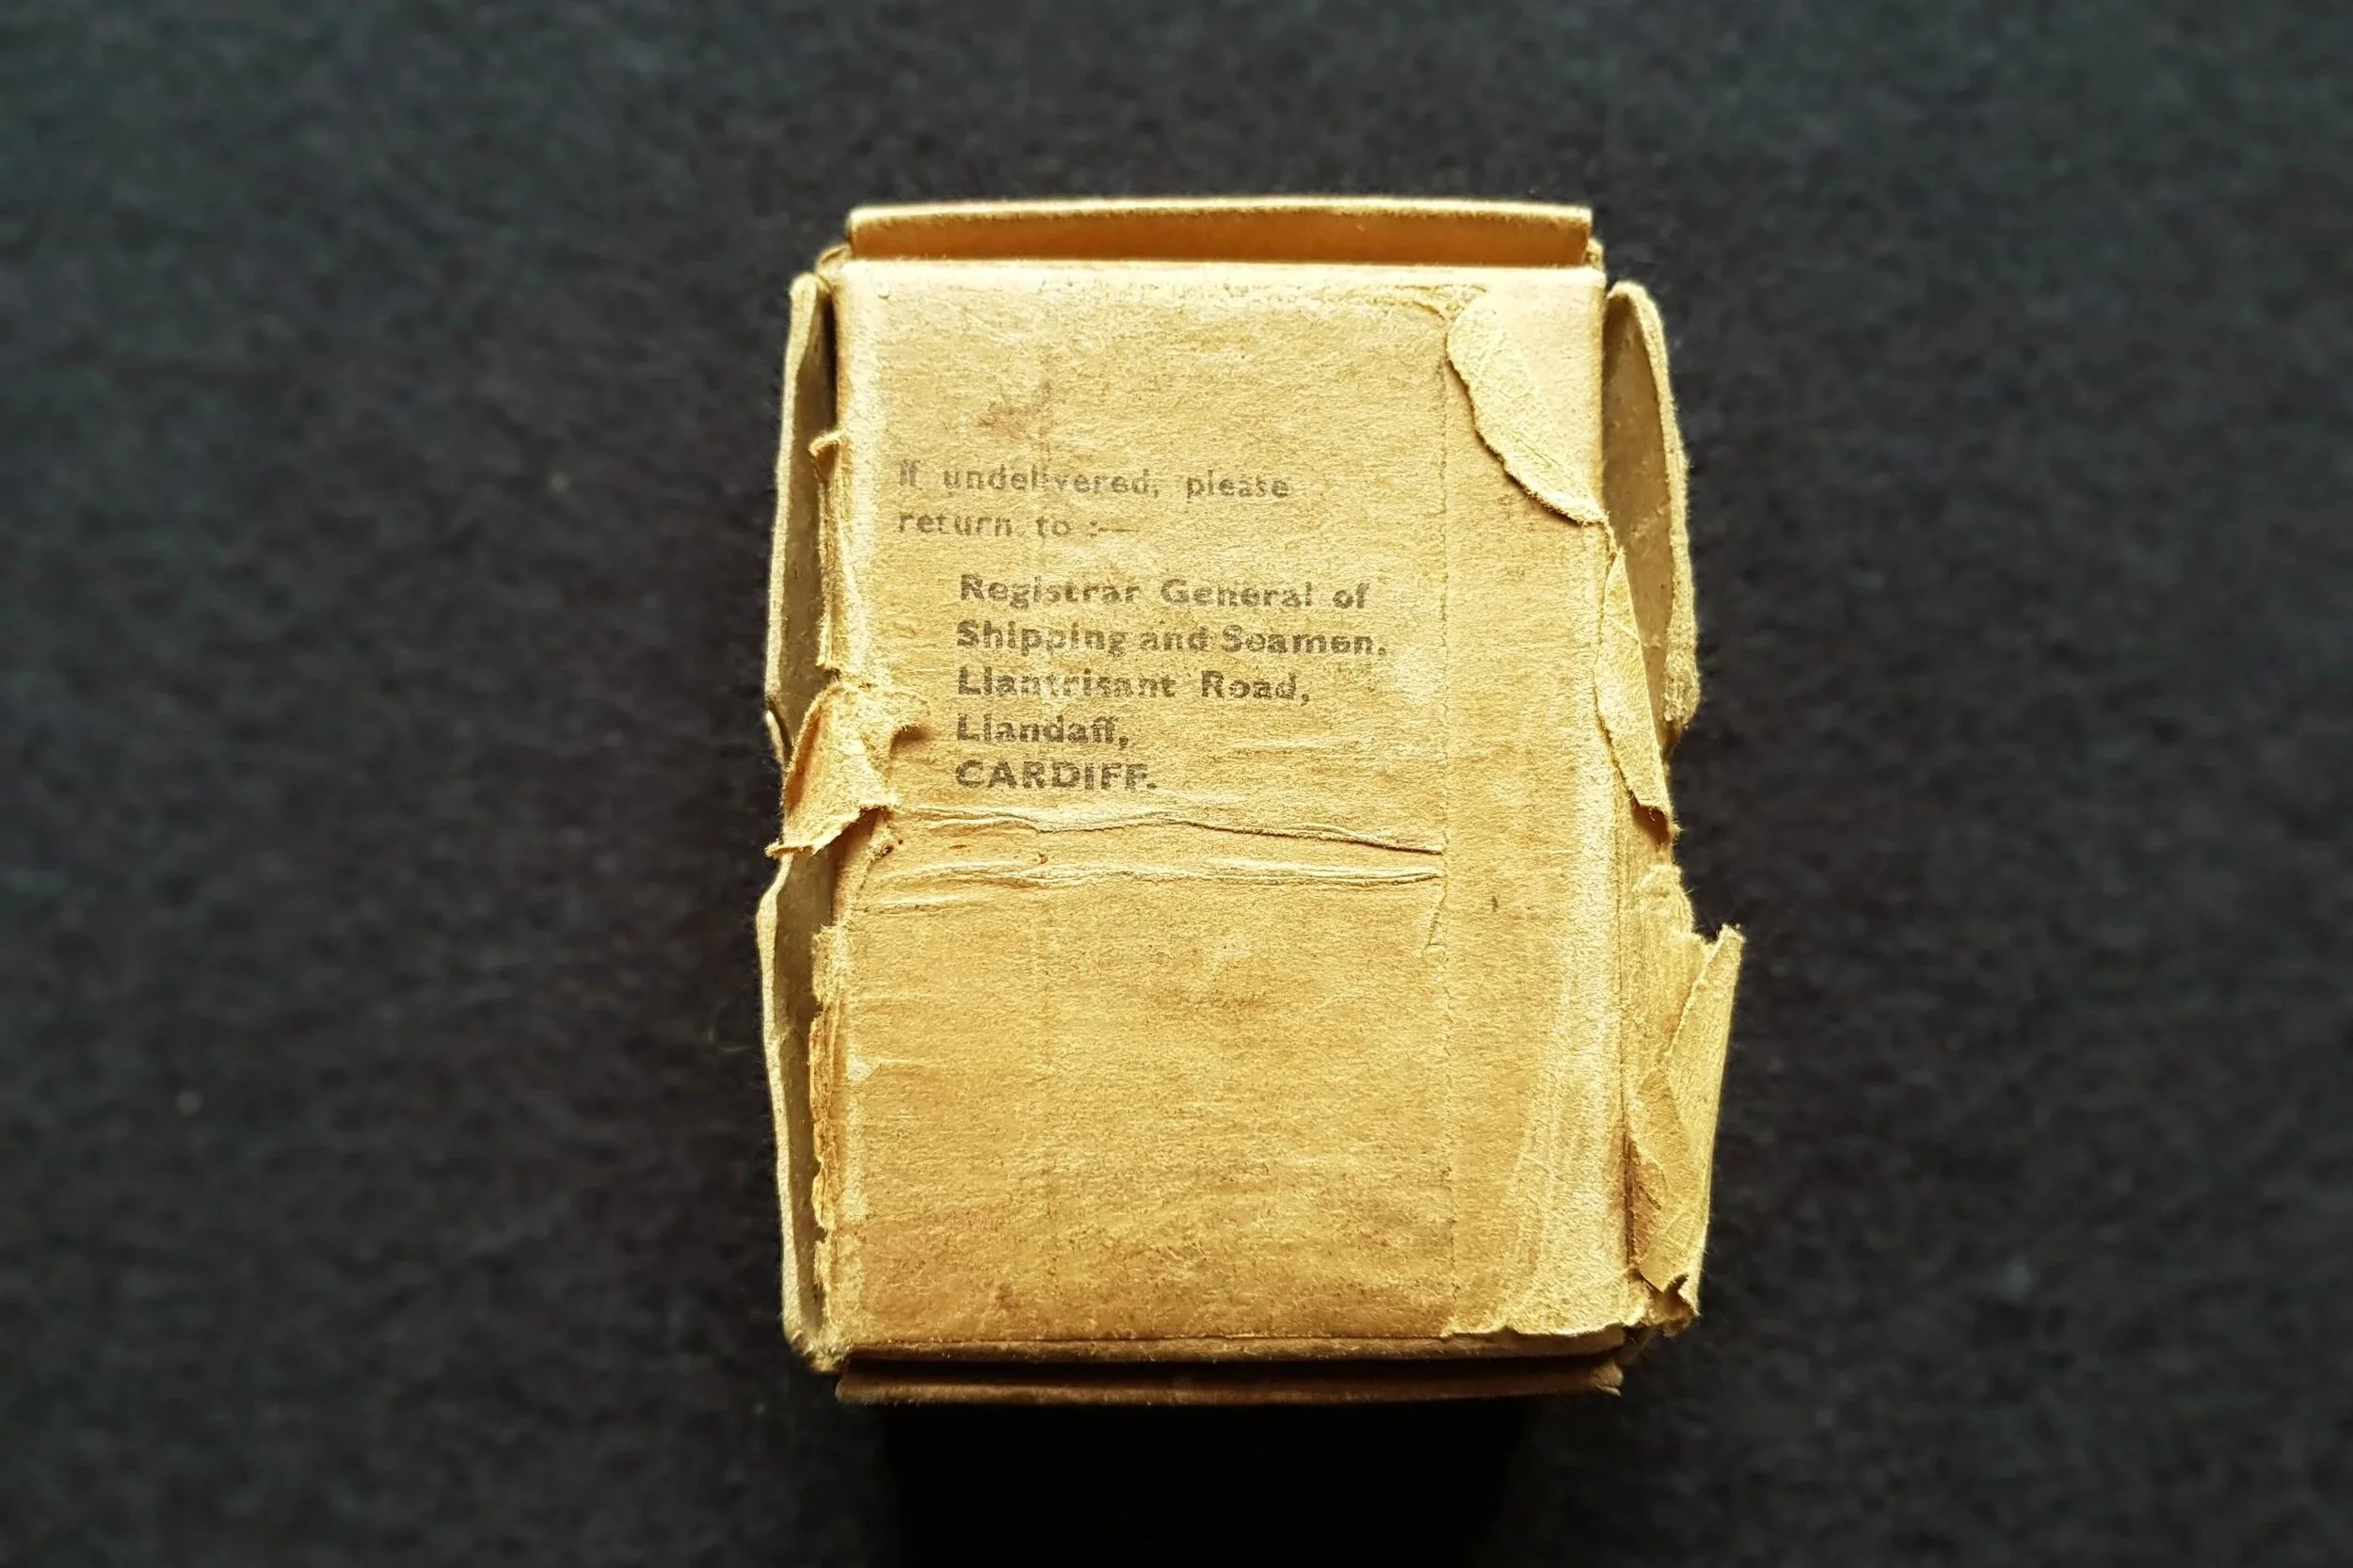 If undelivered, please
return to :—
Registrar General of
Shipping and Seamen,
Llantrisant Road,
Llandaff,
CARDIFF.